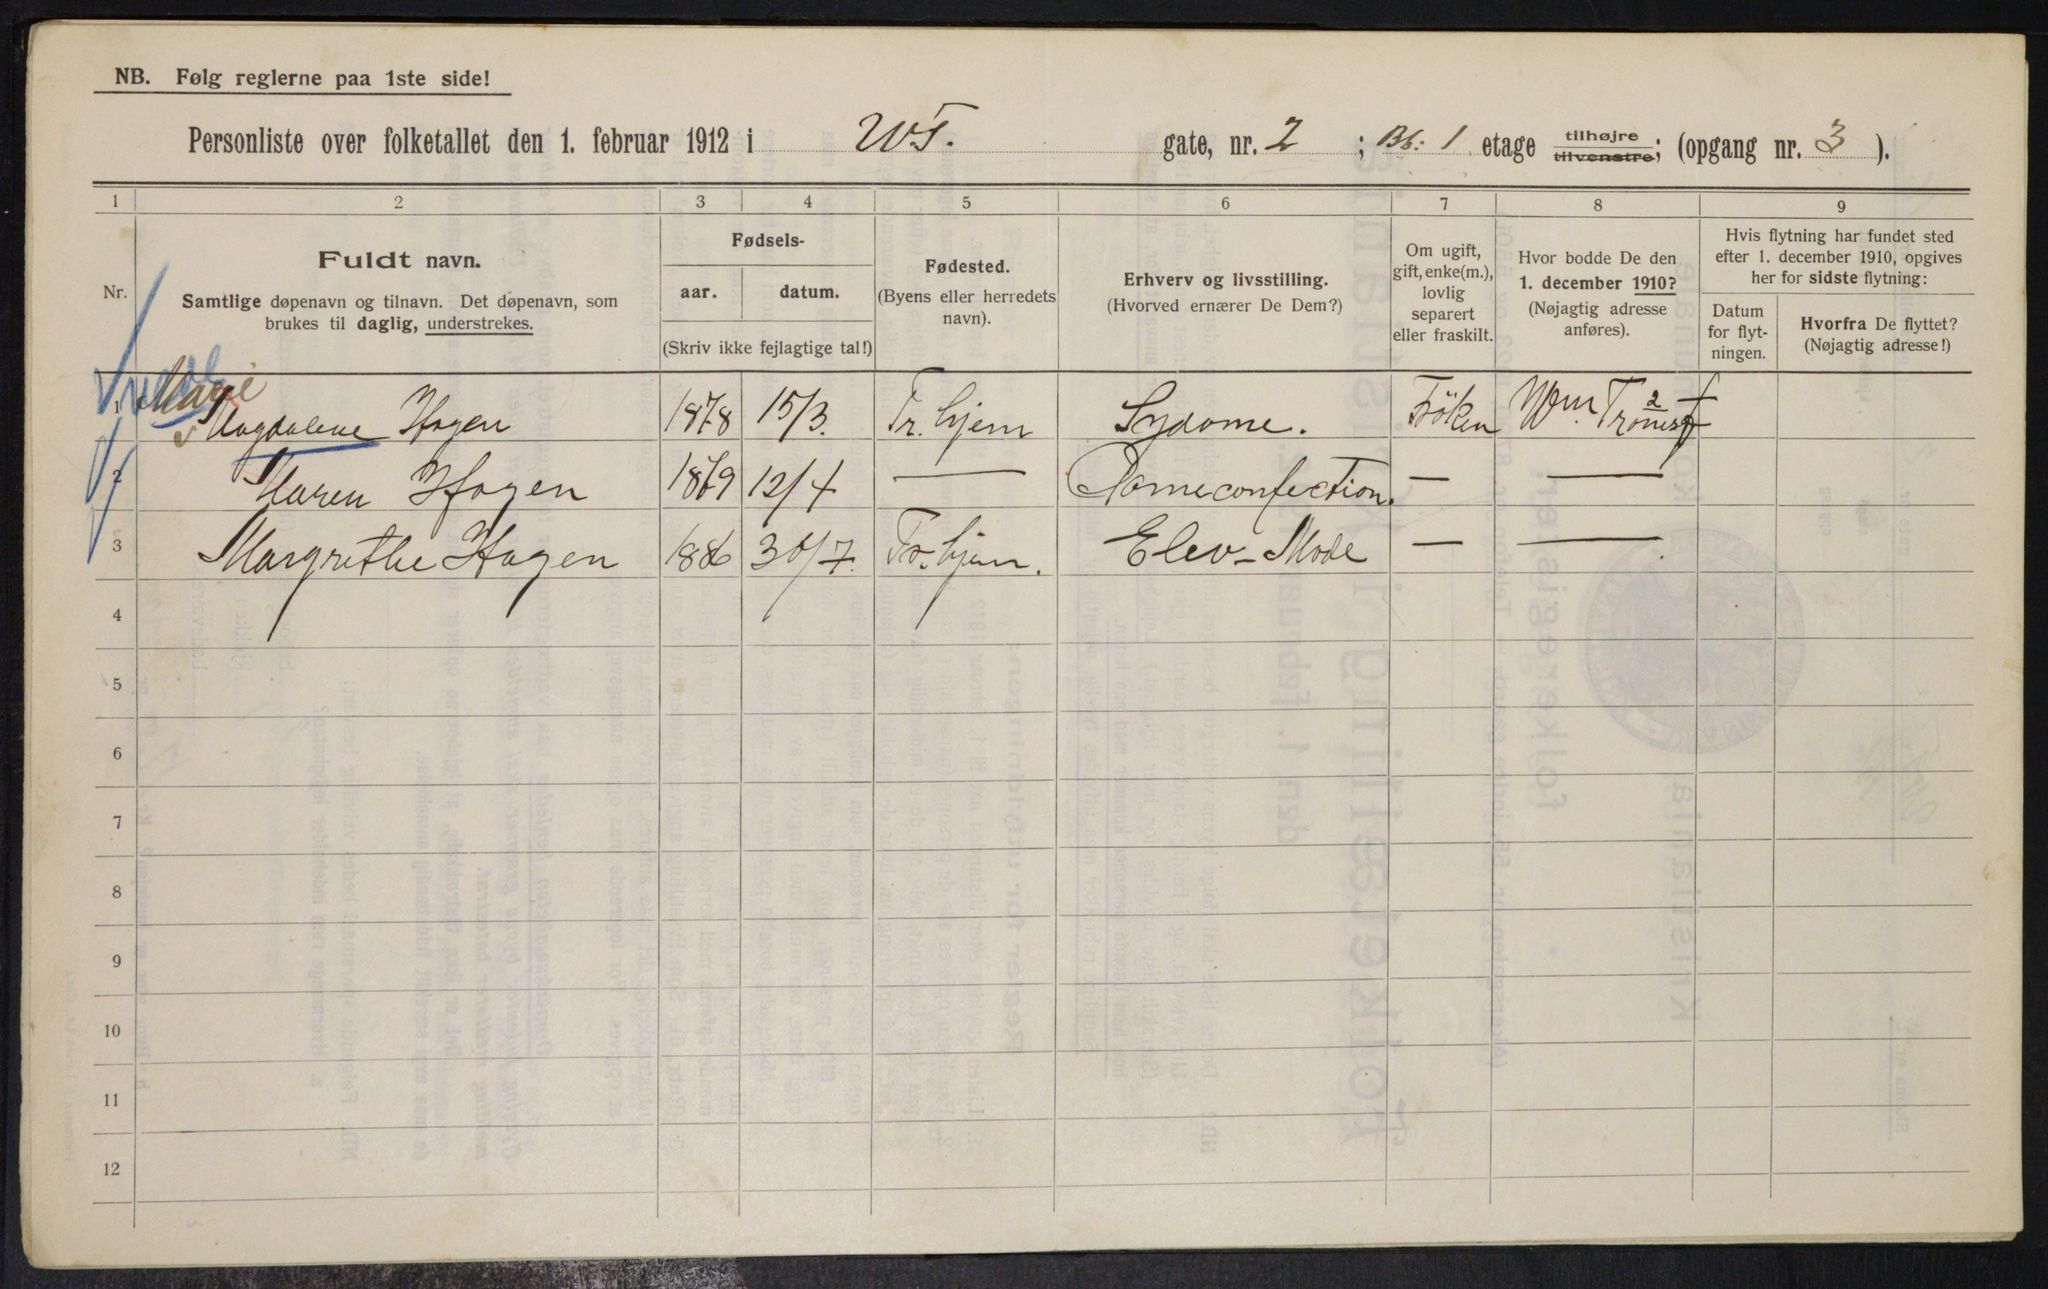 NB. Følg reglerne paa 1ste side!
Personliste over folketallet den 1. februar 1912 i W.T. gate, nr. 2 ; Bb: 1 etage tilhøjre tilvenstre; (opgang nr. 3 ).
1 2 3 4 5 6 7 8 9
Nr.
Fuldt navn.
Samtlige døpenavn og tilnavn. Det døpenavn, som
brukes til daglig, understrekes.
Fødsels-
aar. datum.
(Skriv ikke fejlagtige tal!)
Fødested.
(Byens eller herredets
navn).
Erhverv og livsstilling.
(Hvorved ernærer De Dem?)
Om ugift,
gift, enke(m.),
lovlig
separert
eller fraskilt.
Hvor bodde De den
1. december 1910?
(Nøjagtig adresse
anføres).
Hvis flytning har fundet sted
efter 1. december 1910, opgives
her for sidste flytning:
Datum
for flyt-
ningen.
Hvorfra De flyttet?
(Nøjagtig adresse!)
Marie
1 Magdalene Hagen 1878 15/3. Tr. hjem Sydame. Föken Wm. Tronesgt 2
2 Maren Hagen 1869 12/4 — Dameconfection. — —
3 Margrethe Hagen 1886 30/7. Tr. hjem. Elev - Mode — —
4
5
6
7
8
9
10
11
12